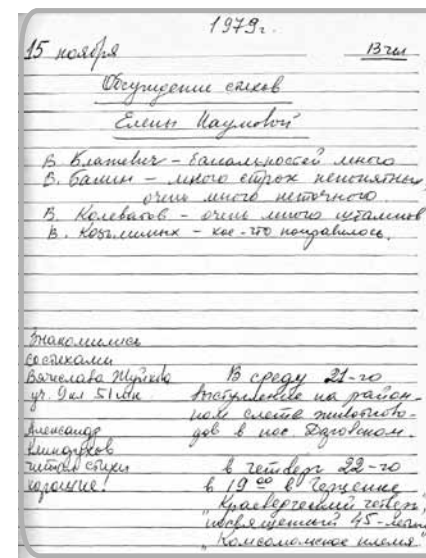 1979г.
15 ноября 13 чел
Обсуждение стихов
Елены Наумовой
В. Блашевич – банальностей много
В. Бакин – много строк непонятных,
очень много неточного.
В. Колеватов – очень много штампов
В. Козьминых – кое-что понравилось.
Знакомились
со стихами
Вячеслава
уч. 9 кл 51 шк.
Александр
читал стихи
хорошие!
В среду 21-го
выступление на район-
ном слете животново-
дов в пос.
в четверг 22-го
в 19 00 в Герценке
"Краеведческий четверг",
посвященный 45-летию
"Комсомольское племя"